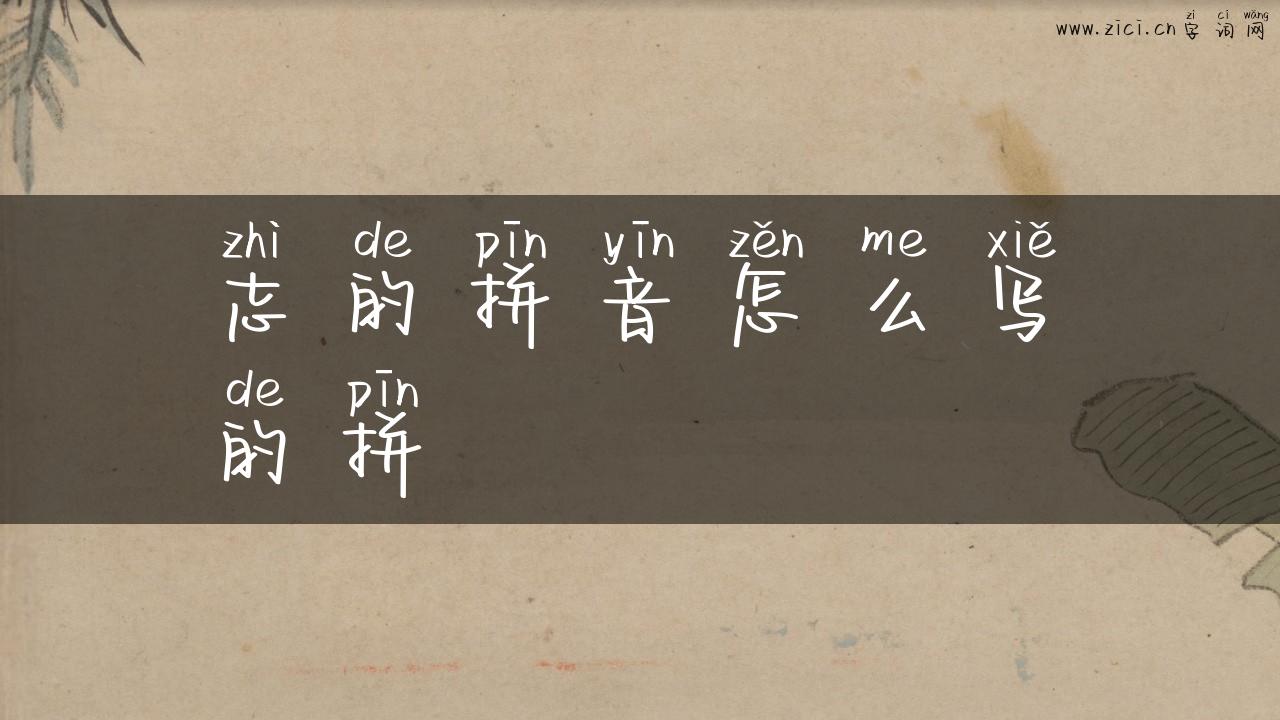 zì cí wǎng
www.zici.cn 字词网
zhì de pīn yīn zěn me xiě
志的拼音怎么写
de pīn
的拼